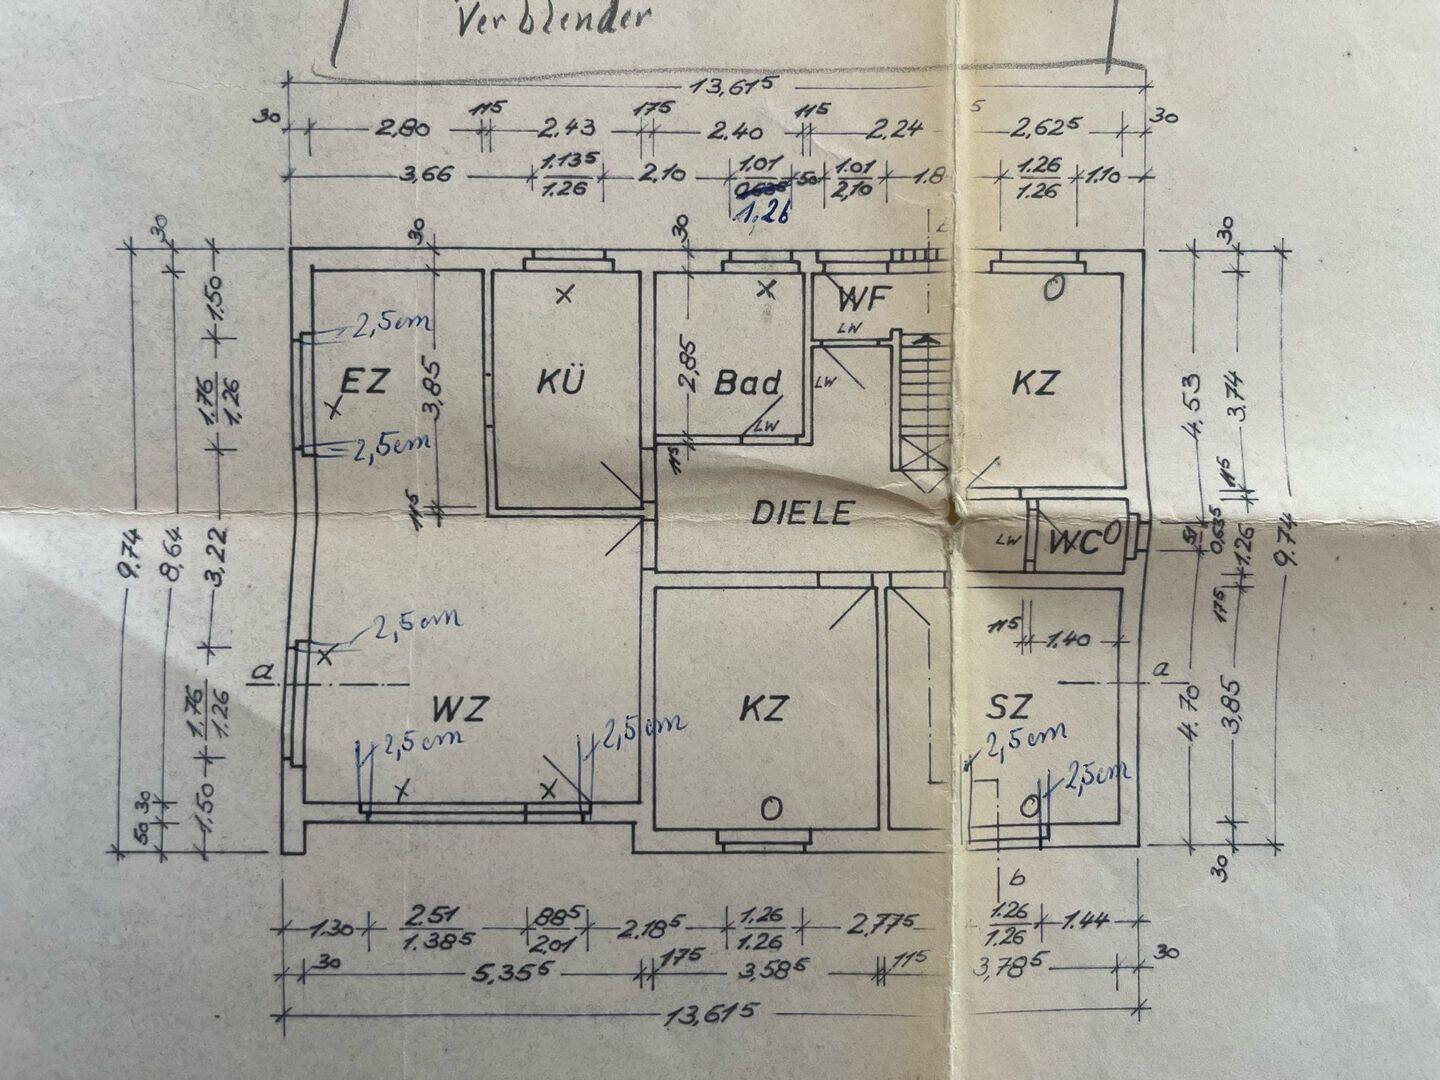 Verblender
13,61⁵
30 2,80 11⁵ 2,43 17⁵ 2,40 11⁵ 2,24 5 2,62⁵ 30
3,66 1.13⁵ 1.26 2,10 1.01 1.26 50 1.01 2,10 1.8 1.26 1.26 1.10
30 30 30 30
1,50 2,5cm
WF LW
EZ 3,85 KÜ 2,85 Bad LW KZ
1.76 1.26 4,53 3,74
2,5cm LW
11⁵ 11⁵ 11⁵
DIELE LW WC
9,74 8,64 3,22 51 0,63⁵ 1.26 9.74
17⁵
2,5cm 11⁵ 1.40
a a
1.76 1.26 WZ KZ SZ 4.70 3,85
2,5cm 2,5cm 2,5cm
2,5cm
1,50 30 50 30
b
1.30 2.51 1.38⁵ 88⁵ 2.01 2.18⁵ 1.26 1.26 2,77⁵ 1.26 1.26 1.44
30 5,35⁵ 17⁵ 3,58⁵ 11⁵ 3,78⁵ 30
13,61⁵